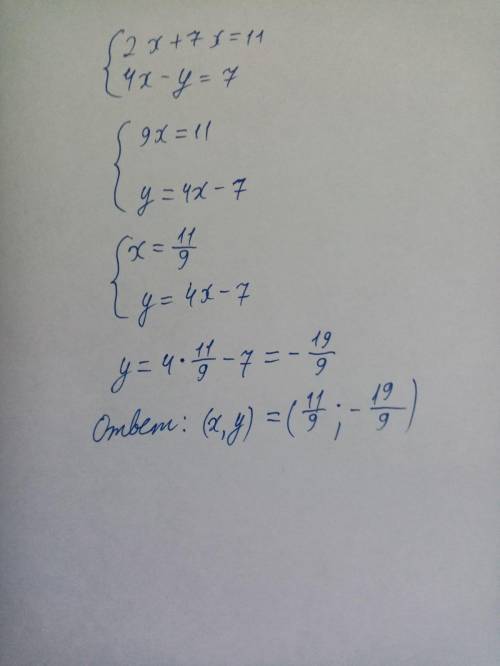 2x+7x=11
4x-y=7
9x=11
y=4x-7
x=11/9
y=4x-7
y=4·11/9-7=-19/9
Ответ: (x,y)=(11/9;-19/9)